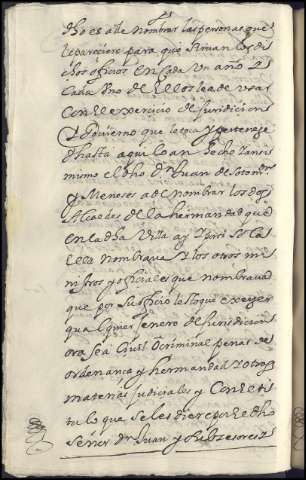 dho es a de nombrar las personas que
le pareciere para que sirvan los di
chos oficios en cada un año y
cada uno de ellos le a de usar
con el exercicio de juridicion
y govierno que le toca y pertenece
y hasta aqui lo an hecho Y ansi
mismo el dho Dn Juan de Sotomr
y Meneses a de nombrar los dos
Alcaldes de la hermandad que
en la dha Villa ay
nombrava y los otros mi
nistros y oficiales que nombrava
que por su oficio les toque exerçer
qualquier genero de jurisdicion
ora sea Civil o criminal penas de
ordenança y hermandad y otras
materias judiciales y con el ti
tulo que se les diere por el dho
señor Dn Juan y subzesores